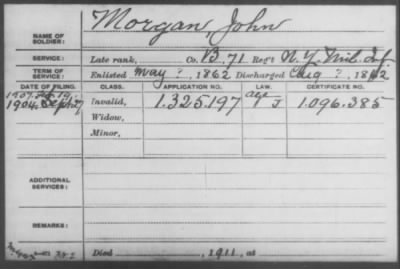 NAME OF SOLDIER: Morgan, John
SERVICE: Late rank, Co. B. 71 Reg't N. Y. Mil. Inf.
TERM OF SERVICE: Enlisted May ?, 1862 Discharged Aug ?, 1862
DATE OF FILING. CLASS. APPLICATION NO. LAW. CERTIFICATE NO.
1904. Sept. 27 Invalid, 1.325.197 J 1.096.385
Widow,
Minor,
ADDITIONAL SERVICES:
REMARKS:
Died 1911, at